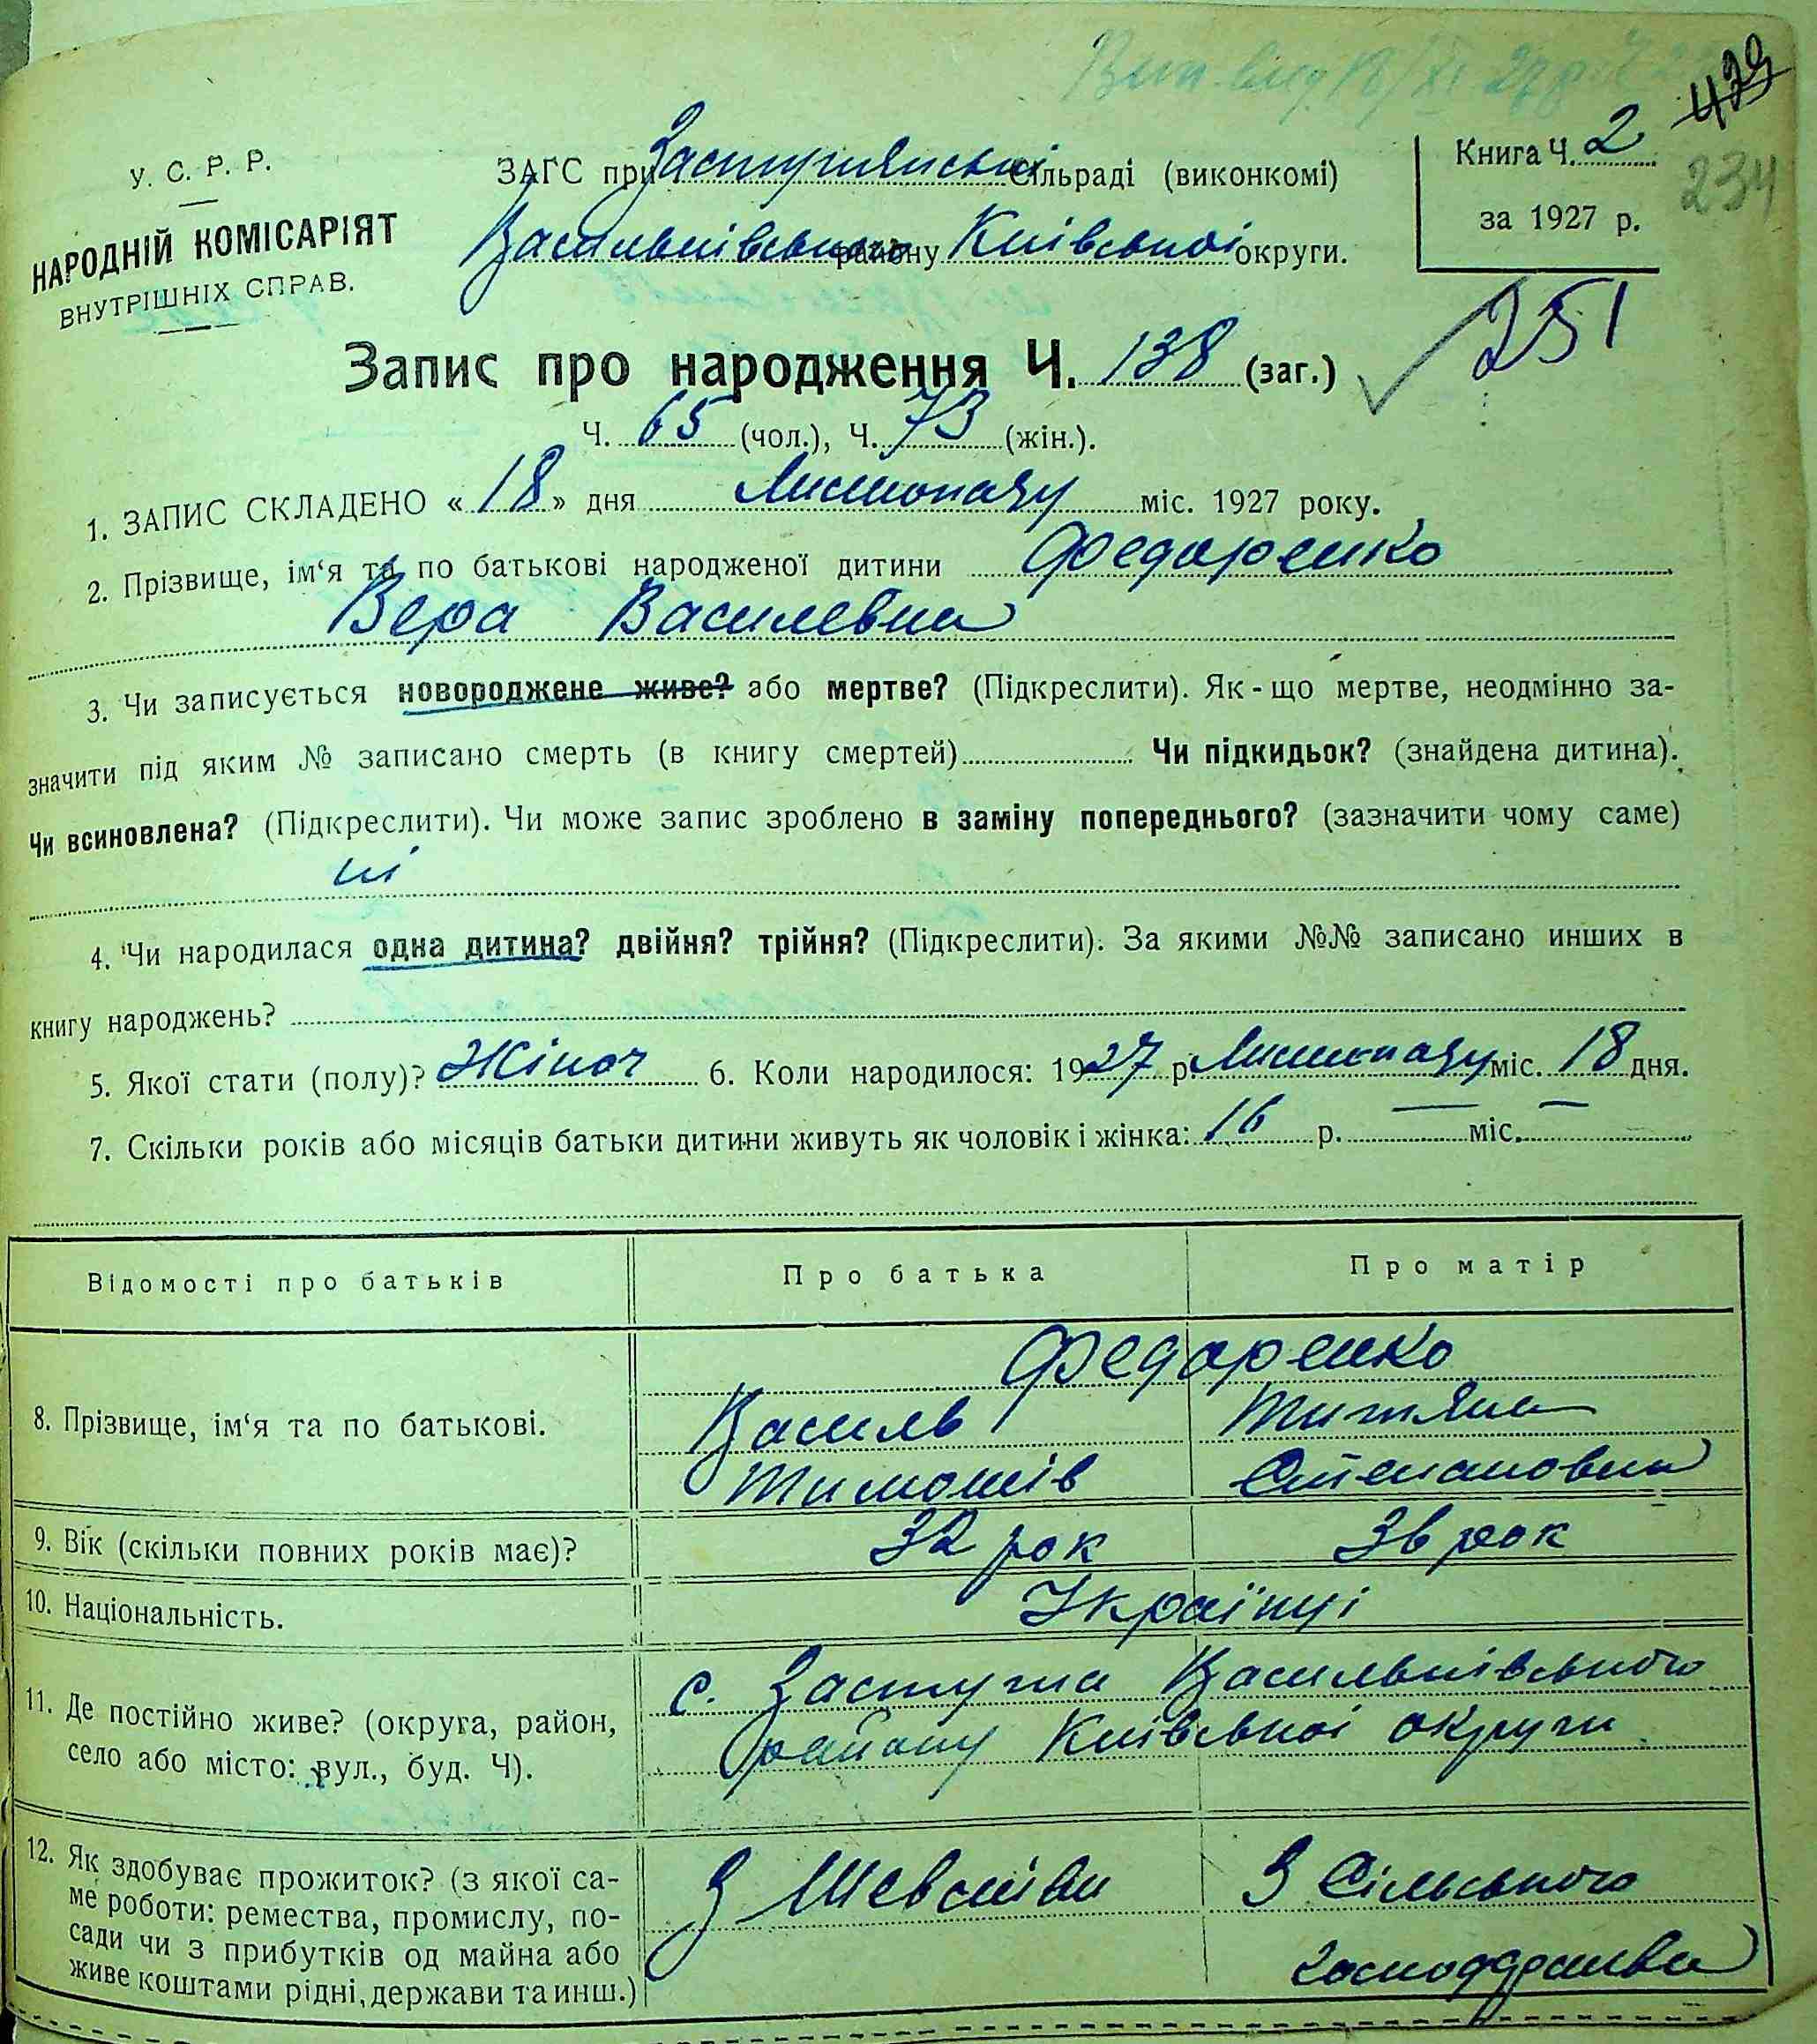 Вип. вид. 18/XI 27 р.
479
У. С. Р. Р.
НАРОДНІЙ КОМІСАРІЯТ
ВНУТРІШНІХ СПРАВ.
ЗАГС при Застугнянській Сільраді (виконкомі)
Васильківського району Київської округи.
Книга Ч. 2
за 1927 р.
234
251
Запис про народження Ч. 138 (заг.)
Ч. 65 (чол.), Ч. 73 (жін.).
1. ЗАПИС СКЛАДЕНО « 18 » дня Листопаду міс. 1927 року.
2. Прізвище, ім‘я та по батькові народженої дитини Федаренко
Вера Василевна
3. Чи записується новороджене живе? або мертве? (Підкреслити). Як-що мертве, неодмінно за-
значити під яким № записано смерть (в книгу смертей) Чи підкидьок? (знайдена дитина).
Чи всиновлена? (Підкреслити). Чи може запис зроблено в заміну попереднього? (зазначити чому саме)
ні
4. Чи народилася одна дитина? двійня? трійня? (Підкреслити). За якими №№ записано инших в
книгу народжень?
5. Якої стати (полу)? Жіноч 6. Коли народилося: 1927 р. Листопаду міс. 18 дня.
7. Скільки років або місяців батьки дитини живуть як чоловік і жінка: 16 р. — міс. —
Відомості про батьків Про батька Про матір
Федаренко
8. Прізвище, ім‘я та по батькові. Василь Титяна
Тимошів Степановна
9. Вік (скільки повних років має)? 32 рок 36 рок
10. Національність. Українці
11. Де постійно живе? (округа, район, с. Застугна Васильківського
село або місто: вул., буд. Ч). району Київської округи
12. Як здобуває прожиток? (з якої са- З Шевства З Сільського
ме роботи: ремества, промислу, по- господдрства
сади чи з прибутків од майна або
живе коштами рідні, держави та инш.)